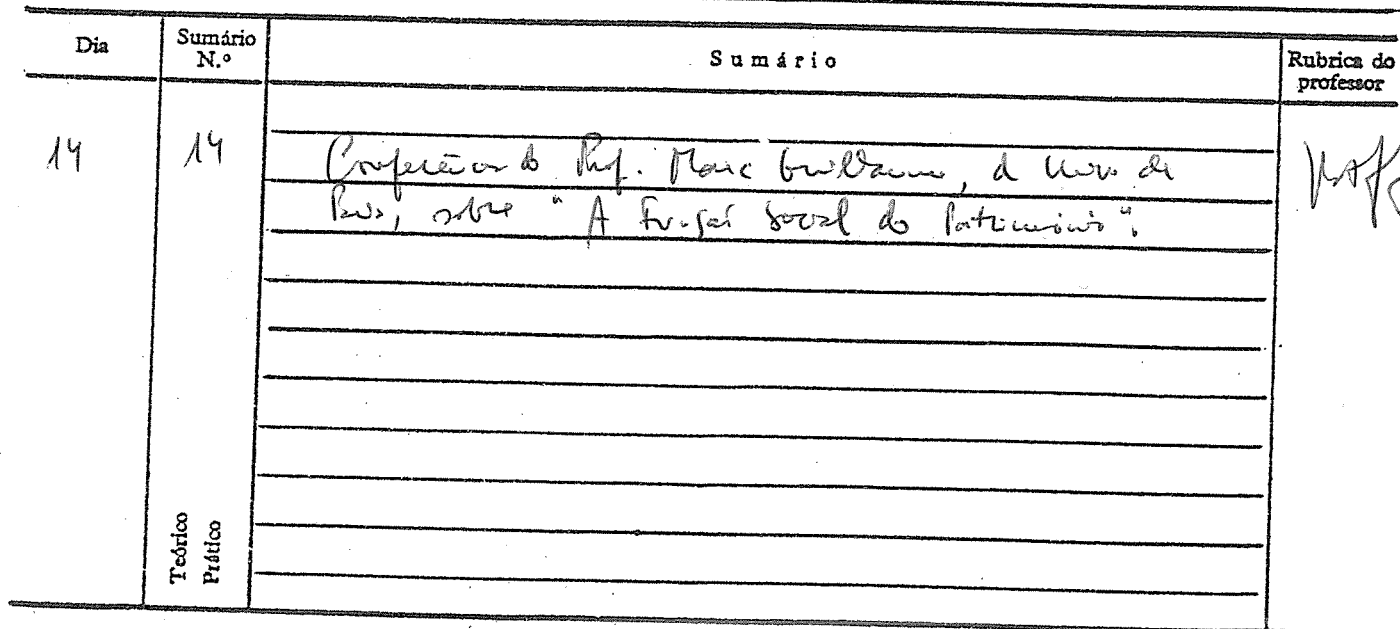 Dia
Sumário N.º
Sumário
Rubrica do professor
14
14
Conferência do Prof. Marc Guillaume, da Univ. de
Paris, sobre "A Função Social do Património".
Teórico
Prático